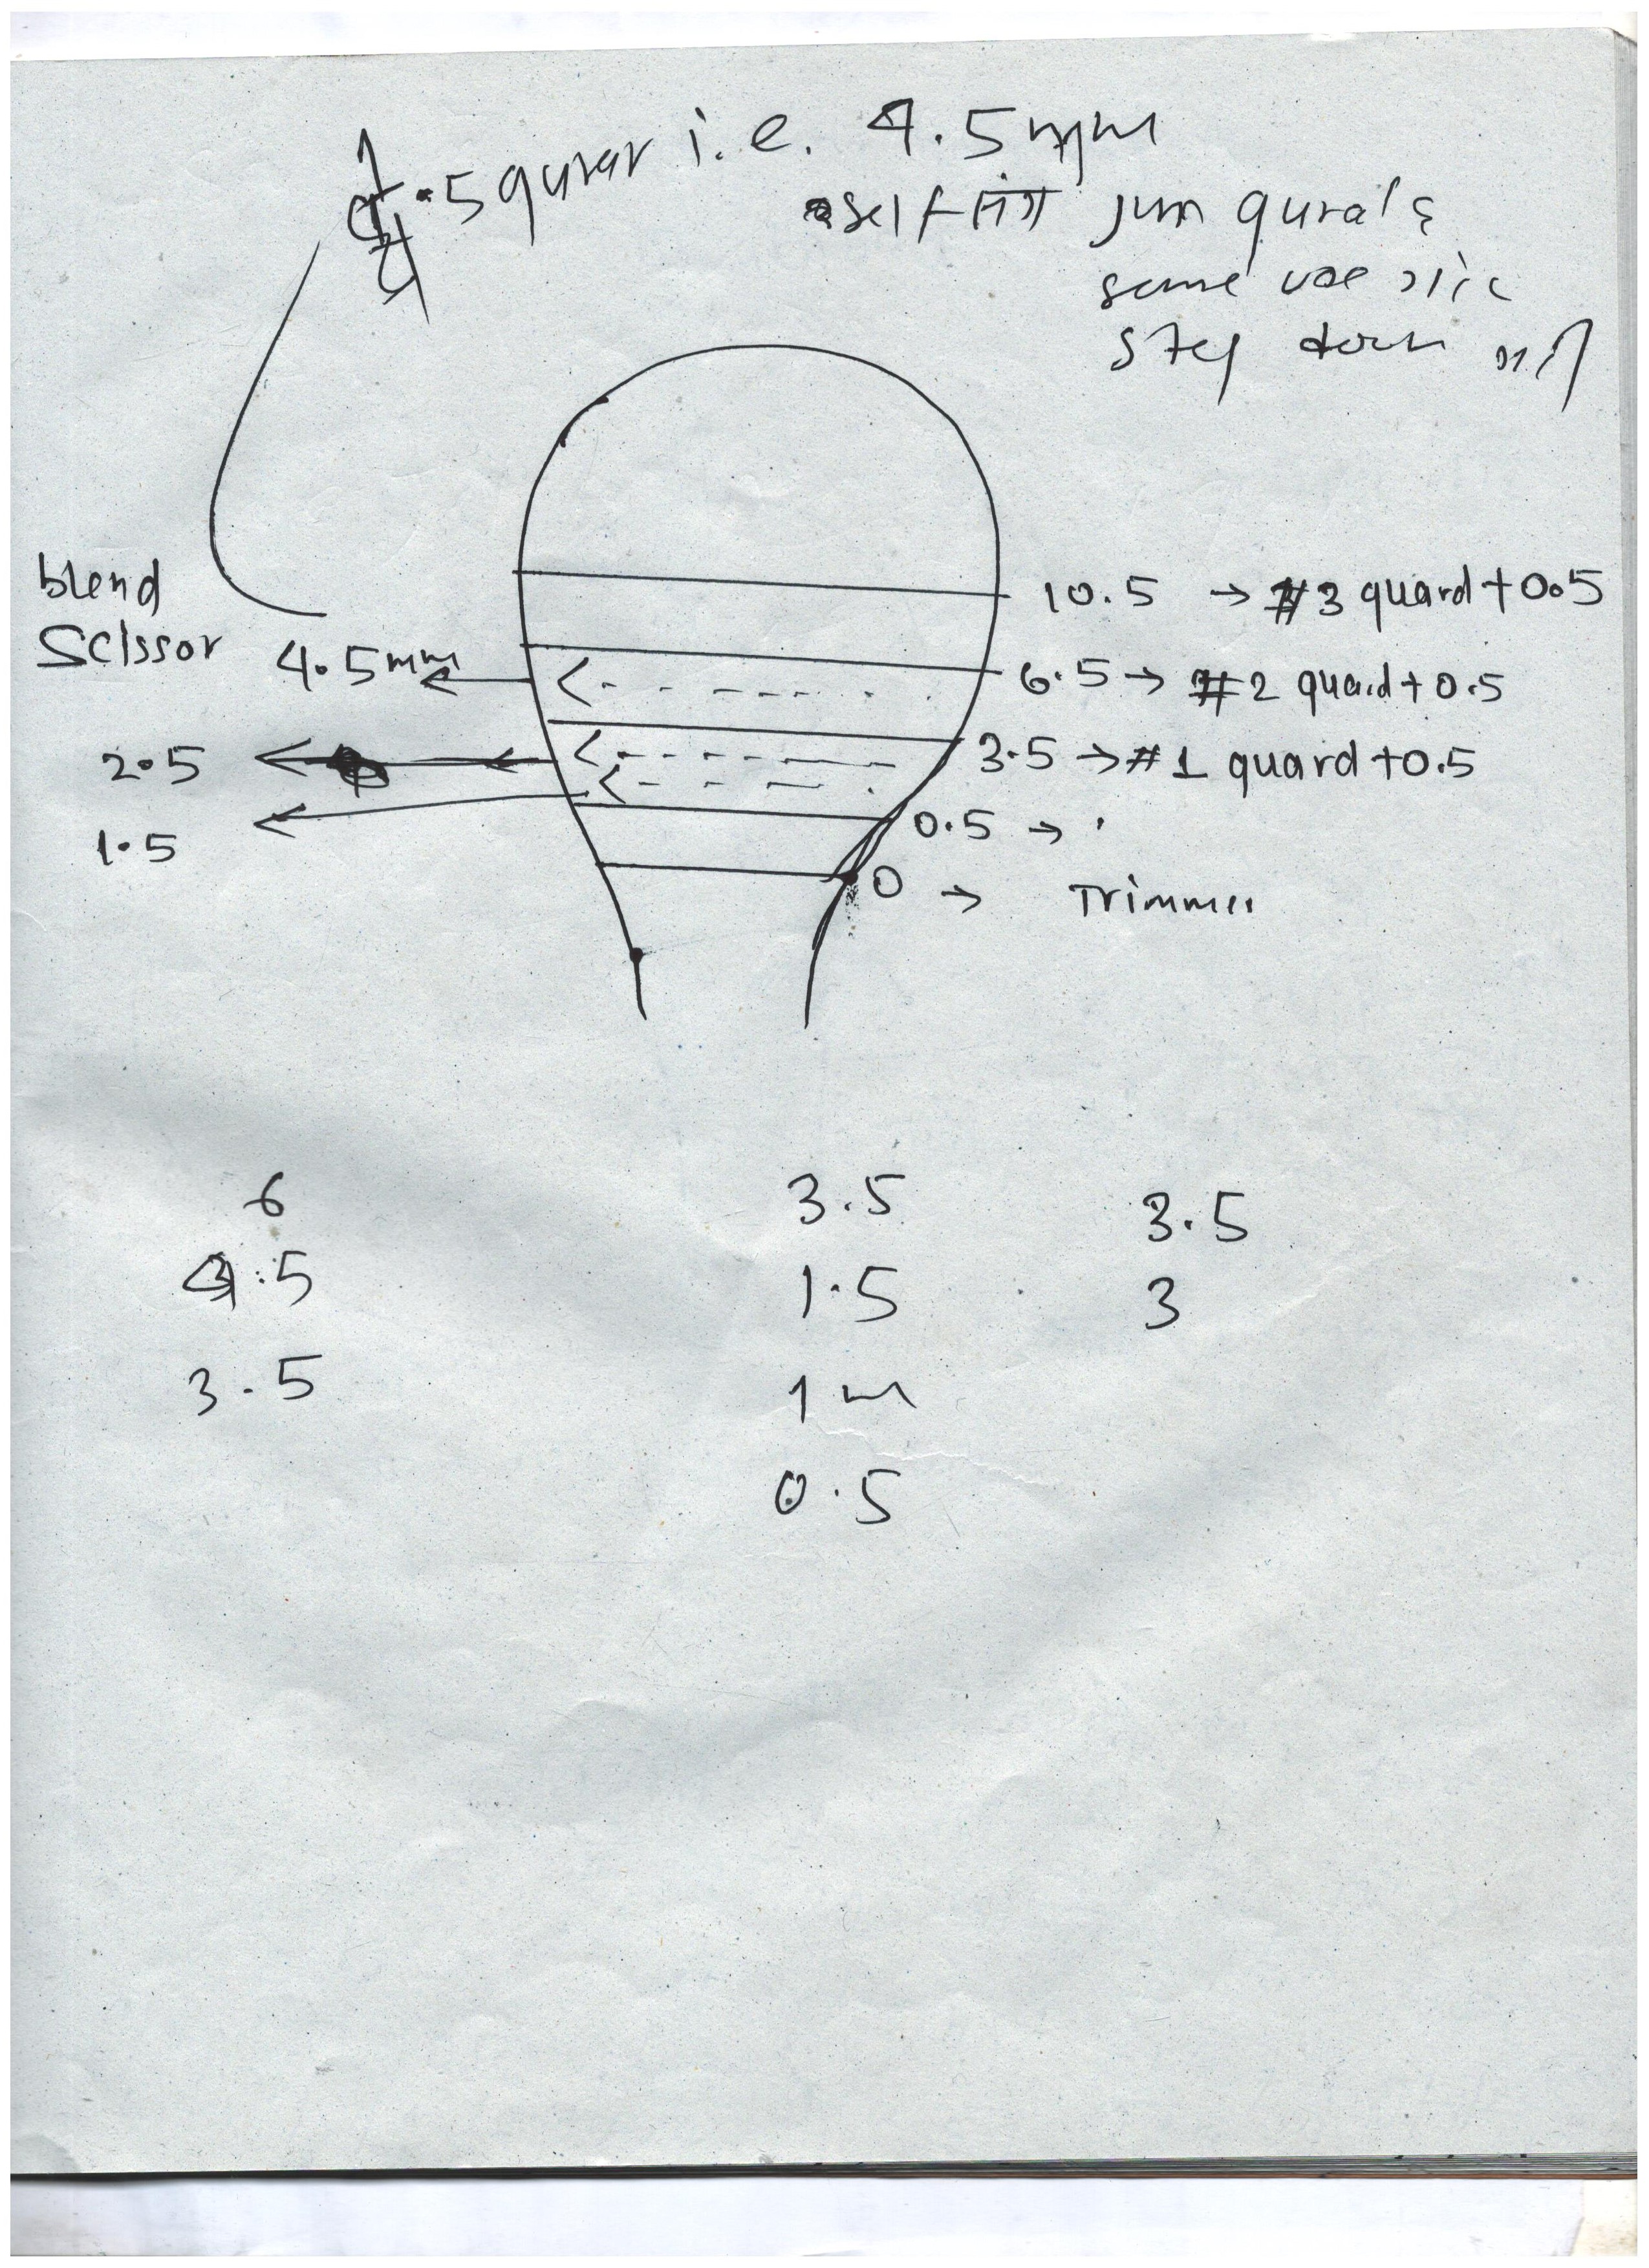 .5 i.e. 4.5mm
self
same use
step down
blend
scissor
4.5mm
2.5
1.5
10.5 → #3 guard + 0.5
6.5 → #2 guard + 0.5
3.5 → #1 guard + 0.5
0.5 →
0 → Trimmer
6
4.5
3.5
3.5
1.5
1
0.5
3.5
3